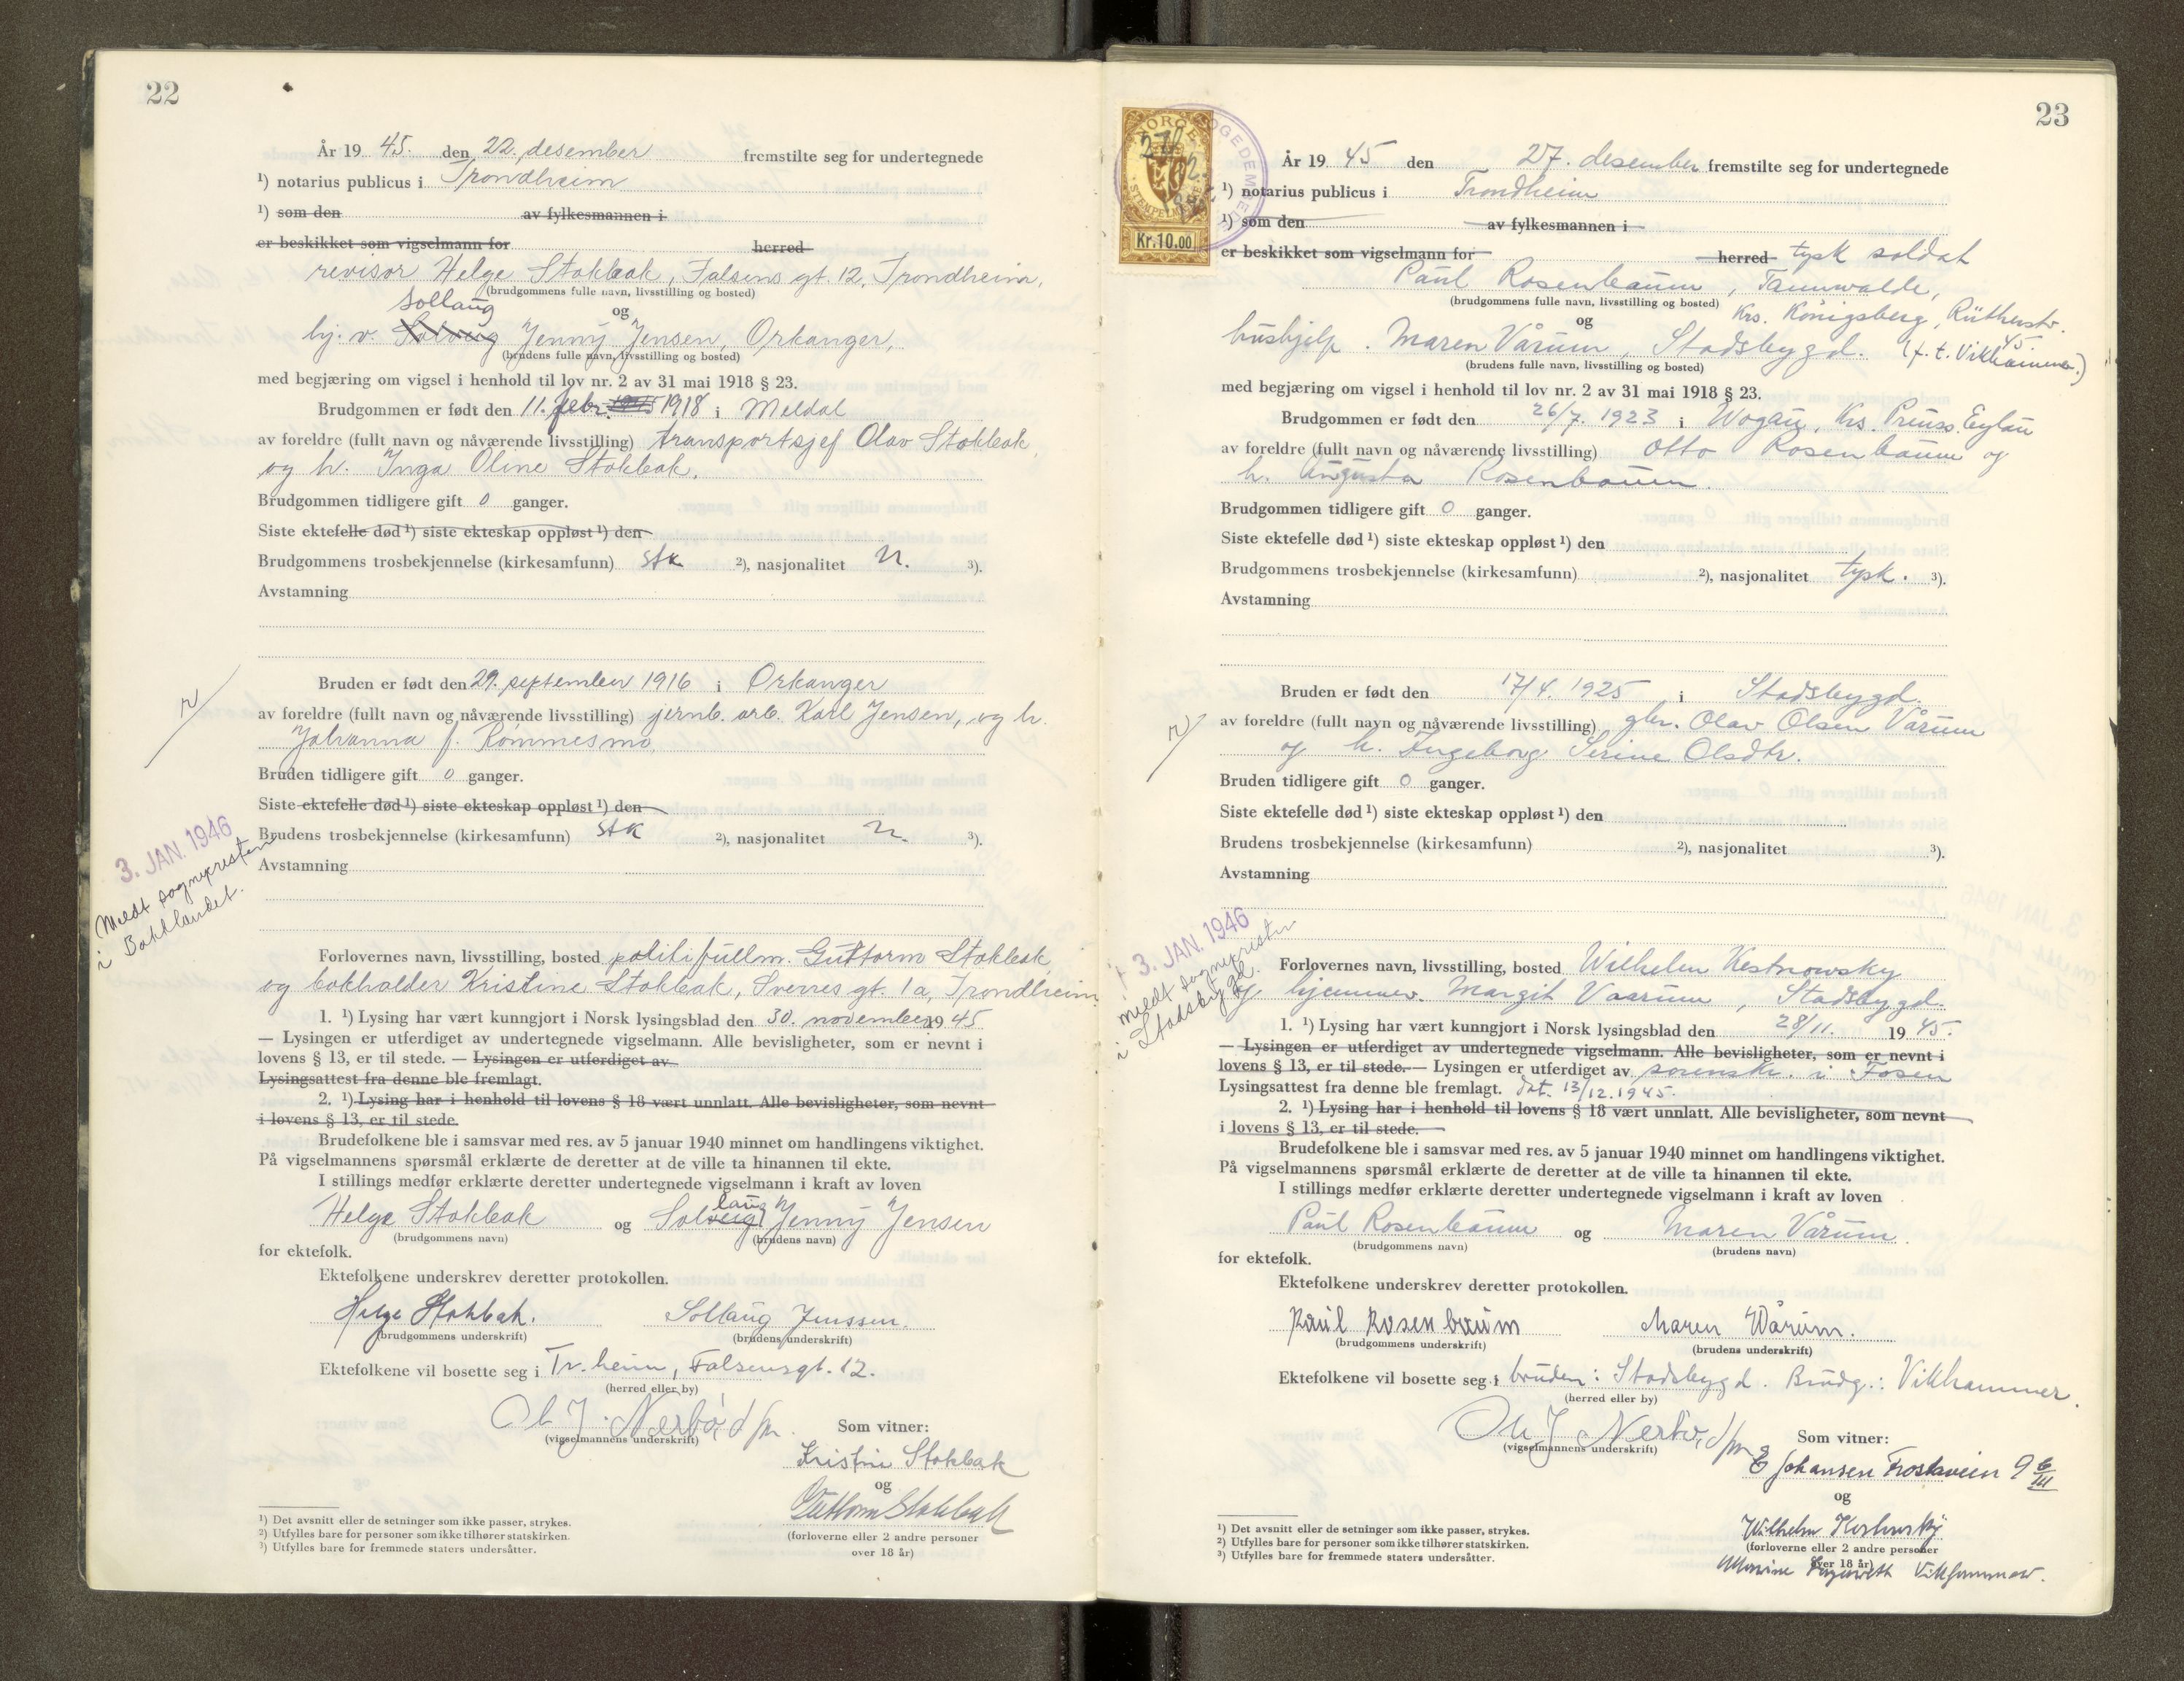 22
År 19 45. den 22. desember fremstilte seg for undertegnede
¹) notarius publicus i Trondheim
¹) som den av fylkesmannen i
er beskikket som vigselmann for herred
revisor Helge Stokbak, Falsens gt. 12, Trondheim,
(brudgommens fulle navn, livsstilling og bosted)
Sollaug
og
hj. v. Solveig Jenny Jensen, Orkanger,
(brudens fulle navn, livsstilling og bosted)
med begjæring om vigsel i henhold til lov nr. 2 av 31 mai 1918 § 23.
Brudgommen er født den 11. febr. 1945 1918 i Meldal
av foreldre (fullt navn og nåværende livsstilling) transportsjef Olav Stokbak,
og h. Inga Oline Stokbak.
Brudgommen tidligere gift 0 ganger.
Siste ektefelle død ¹) siste ekteskap oppløst ¹) den
Brudgommens trosbekjennelse (kirkesamfunn) stk ²), nasjonalitet n. ³).
Avstamning
Bruden er født den 29. september 1916 i Orkanger
av foreldre (fullt navn og nåværende livsstilling) jernb. arb. Karl Jensen, og h.
Johanna f. Rommesmo
Bruden tidligere gift 0 ganger.
Siste ektefelle død ¹) siste ekteskap oppløst ¹) den
Brudens trosbekjennelse (kirkesamfunn) stk ²), nasjonalitet n. ³).
Avstamning
3. JAN. 1946
Meldt sognepresten
i Bakklandet.
Forlovernes navn, livsstilling, bosted politifullm. Guttorm Stokbak
og bokholder Kristine Stokbak, Sverres gt. 1a, Trondheim
1. ¹) Lysing har vært kunngjort i Norsk lysingsblad den 30. november 19 45
— Lysingen er utferdiget av undertegnede vigselmann. Alle bevisligheter, som er nevnt i
lovens § 13, er til stede. — Lysingen er utferdiget av
Lysingsattest fra denne ble fremlagt.
2. ¹) Lysing har i henhold til lovens § 18 vært unnlatt. Alle bevisligheter, som nevnt
i lovens § 13, er til stede.
Brudefolkene ble i samsvar med res. av 5 januar 1940 minnet om handlingens viktighet.
På vigselmannens spørsmål erklærte de deretter at de ville ta hinannen til ekte.
I stillings medfør erklærte deretter undertegnede vigselmann i kraft av loven
laug
Helge Stokbak og Solveig Jenny Jensen
(brudgommens navn) (brudens navn)
for ektefolk.
Ektefolkene underskrev deretter protokollen.
Helge Stokbak. Sollaug Jenssen.
(brudgommens underskrift) (brudens underskrift)
Ektefolkene vil bosette seg i Tr.heim, Falsensgt. 12.
(herred eller by)
Ol J. Nerbø, d/fm.
(vigselmannens underskrift)
Som vitner:
Kristine Stokbak
og
Guttorm Stokbak
(forloverne eller 2 andre personer
over 18 år)
¹) Det avsnitt eller de setninger som ikke passer, strykes.
²) Utfylles bare for personer som ikke tilhører statskirken.
³) Utfylles bare for fremmede staters undersåtter.
23
NORGE
STEMPEL
Kr.10.00
År 19 45 den 27. desember fremstilte seg for undertegnede
¹) notarius publicus i Trondheim
¹) som den av fylkesmannen i
er beskikket som vigselmann for herred tysk soldat
Paul Rosenbaum, Tannwalde,
(brudgommens fulle navn, livsstilling og bosted) Krs. Königsberg, Rütherstr.
og 45
hushjelp. Maren Vårum, Stadsbygd. (f. t. Vikhammer.)
(brudens fulle navn, livsstilling og bosted)
med begjæring om vigsel i henhold til lov nr. 2 av 31 mai 1918 § 23.
Brudgommen er født den 26/7. 1923 i Wogau, Krs. Preuss. Eylau
av foreldre (fullt navn og nåværende livsstilling) Otto Rosenbaum og
h. Augusta Rosenbaum.
Brudgommen tidligere gift 0 ganger.
Siste ektefelle død ¹) siste ekteskap oppløst ¹) den
Brudgommens trosbekjennelse (kirkesamfunn) ²), nasjonalitet tysk. ³).
Avstamning
Bruden er født den 17/4. 1925 i Stadsbygd.
av foreldre (fullt navn og nåværende livsstilling) gbr. Olav Olsen Vårum
og h. Ingeborg Serine Olsdtr.
Bruden tidligere gift 0 ganger.
Siste ektefelle død ¹) siste ekteskap oppløst ¹) den
Brudens trosbekjennelse (kirkesamfunn) ²), nasjonalitet ³).
Avstamning
3. JAN. 1946
Meldt sognepresten
i Stadsbygd.
Forlovernes navn, livsstilling, bosted Wilhelm Kestnowsky
og hjemmev. Margit Vaarum, Stadsbygd.
1. ¹) Lysing har vært kunngjort i Norsk lysingsblad den 28/11. 19 45.
— Lysingen er utferdiget av undertegnede vigselmann. Alle bevisligheter, som er nevnt i
lovens § 13, er til stede. — Lysingen er utferdiget av sorenskr. i Fosen
Lysingsattest fra denne ble fremlagt. dat. 13/12. 1945.
2. ¹) Lysing har i henhold til lovens § 18 vært unnlatt. Alle bevisligheter, som nevnt
i lovens § 13, er til stede.
Brudefolkene ble i samsvar med res. av 5 januar 1940 minnet om handlingens viktighet.
På vigselmannens spørsmål erklærte de deretter at de ville ta hinannen til ekte.
I stillings medfør erklærte deretter undertegnede vigselmann i kraft av loven
Paul Rosenbaum og Maren Vårum.
(brudgommens navn) (brudens navn)
for ektefolk.
Ektefolkene underskrev deretter protokollen.
Paul Rosenbaum Maren Wårum.
(brudgommens underskrift) (brudens underskrift)
Ektefolkene vil bosette seg i bruden: Stadsbygd. Brudg.: Vikhammer.
(herred eller by)
Ol J Nerbø, d/fm
(vigselmannens underskrift)
Som vitner:
E Johansen Frostaveien 9 6/III
og
Wilhelm
(forloverne eller 2 andre personer
over 18 år)
Vikhammer.
¹) Det avsnitt eller de setninger som ikke passer, strykes.
²) Utfylles bare for personer som ikke tilhører statskirken.
³) Utfylles bare for fremmede staters undersåtter.